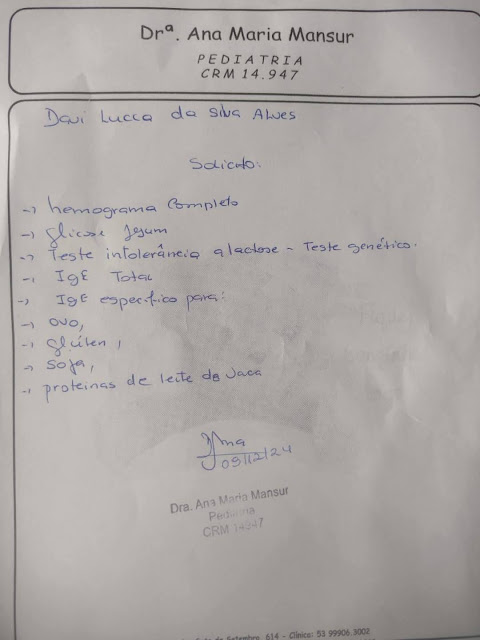 Drª. Ana Maria Mansur
PEDIATRIA
CRM 14.947
Davi Lucca da Silva Alves
Solicito:
-> hemograma Completo
-> glicose Jejum
-> Teste intolerância a lactose - Teste genético.
-> IgE Total
-> IgE específico para:
-> ovo,
-> glúten,
-> soja,
-> proteinas de leite de vaca
Ana
09/12/24
Dra. Ana Maria Mansur
Pediatria
CRM 14947
de Setembro, 614 - Clínica: 53 99906.3002